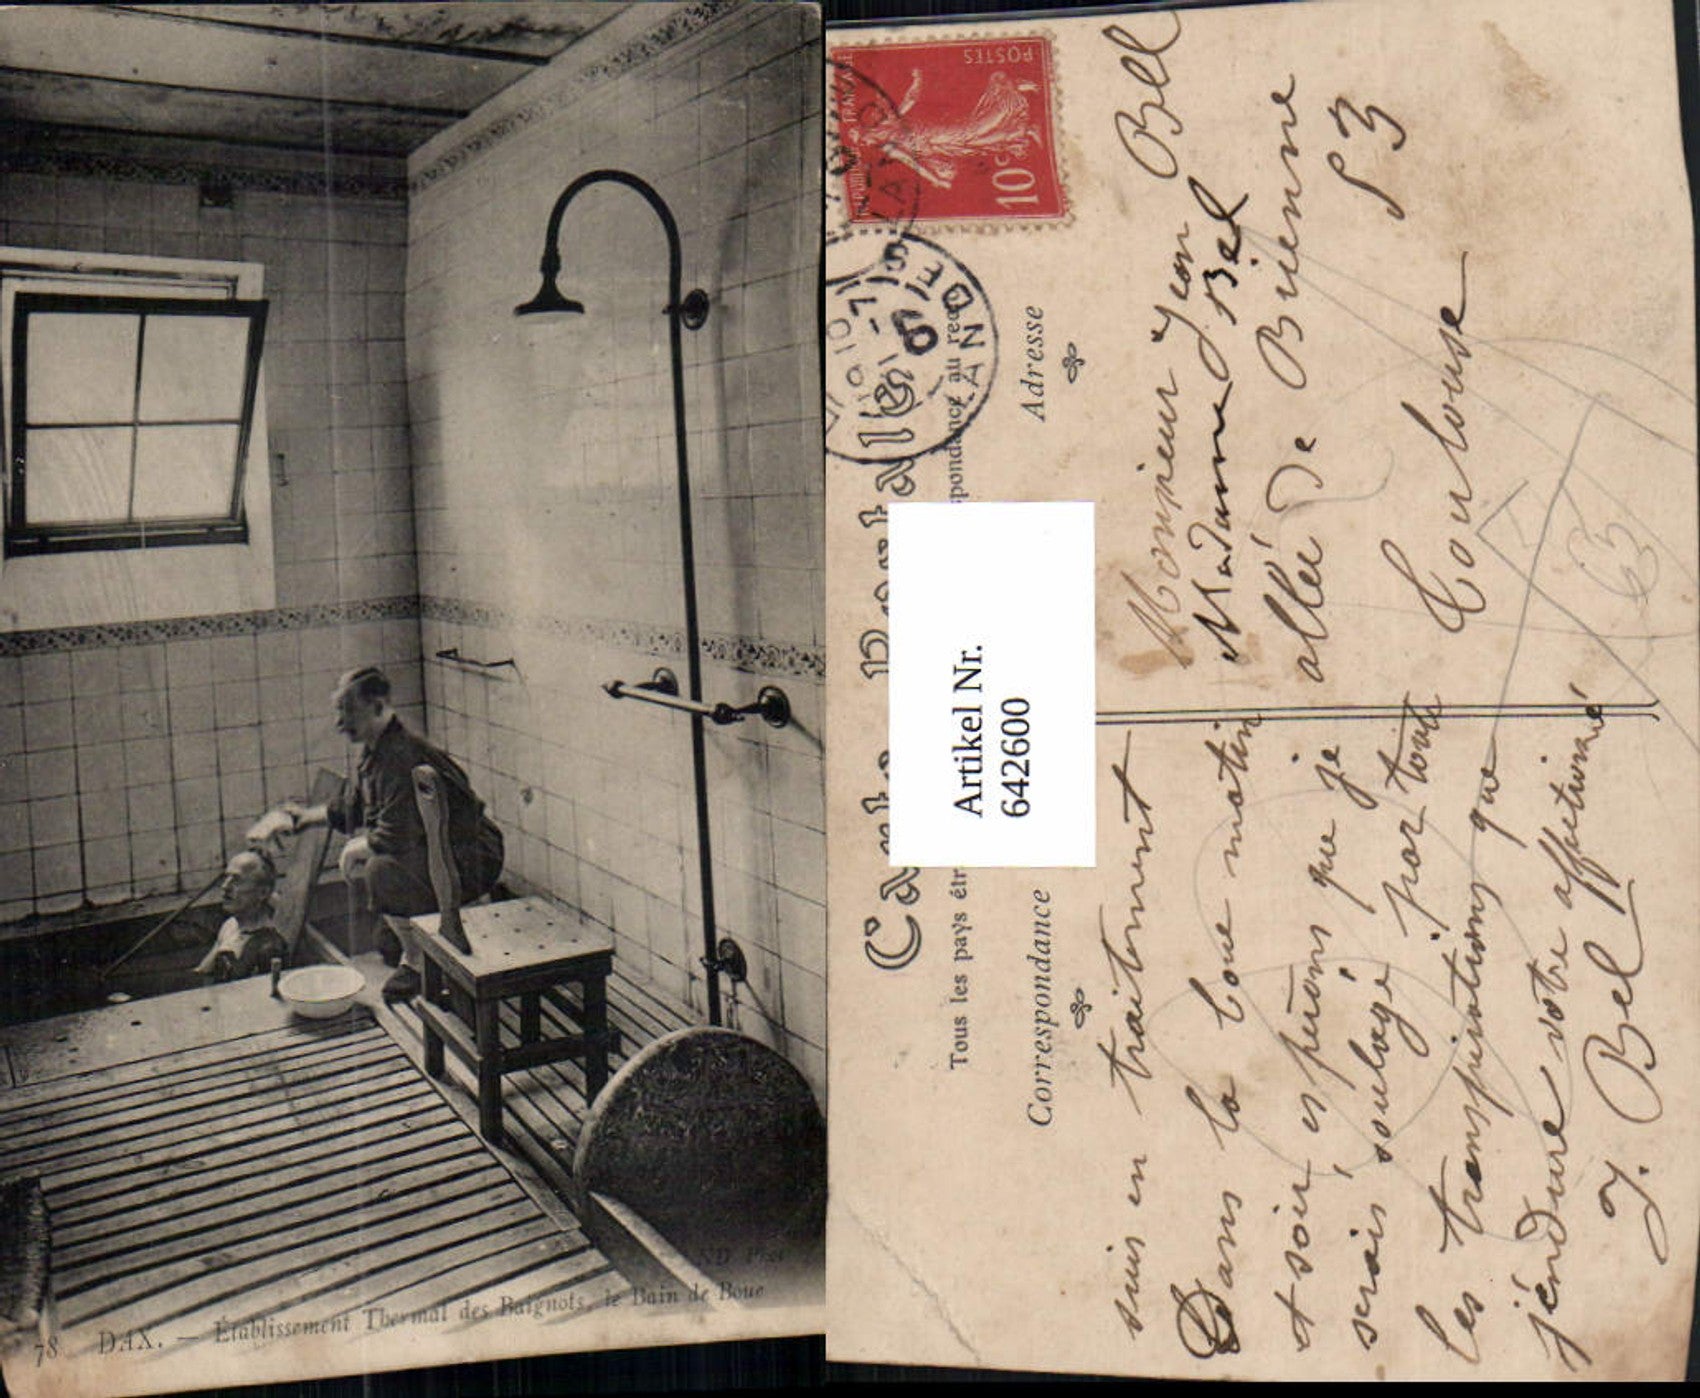 78 DAX. — Établissement Thermal des Baignots, le Bain de Boue
ND Phot
Carte Postale
Tous les pays étr
spondance au rec
Correspondance
Adresse
POSTES
10c
LANDES
Artikel Nr.
642600
suis en traitement
Dans la boue matin
et soir espérons que je
serais soulagé par toute
les transpirations que
j'endure votre affectionné
J. Bel
Monsieur Jean Bell
Madame Bel
allée de Brienne
53
Toulouse
63